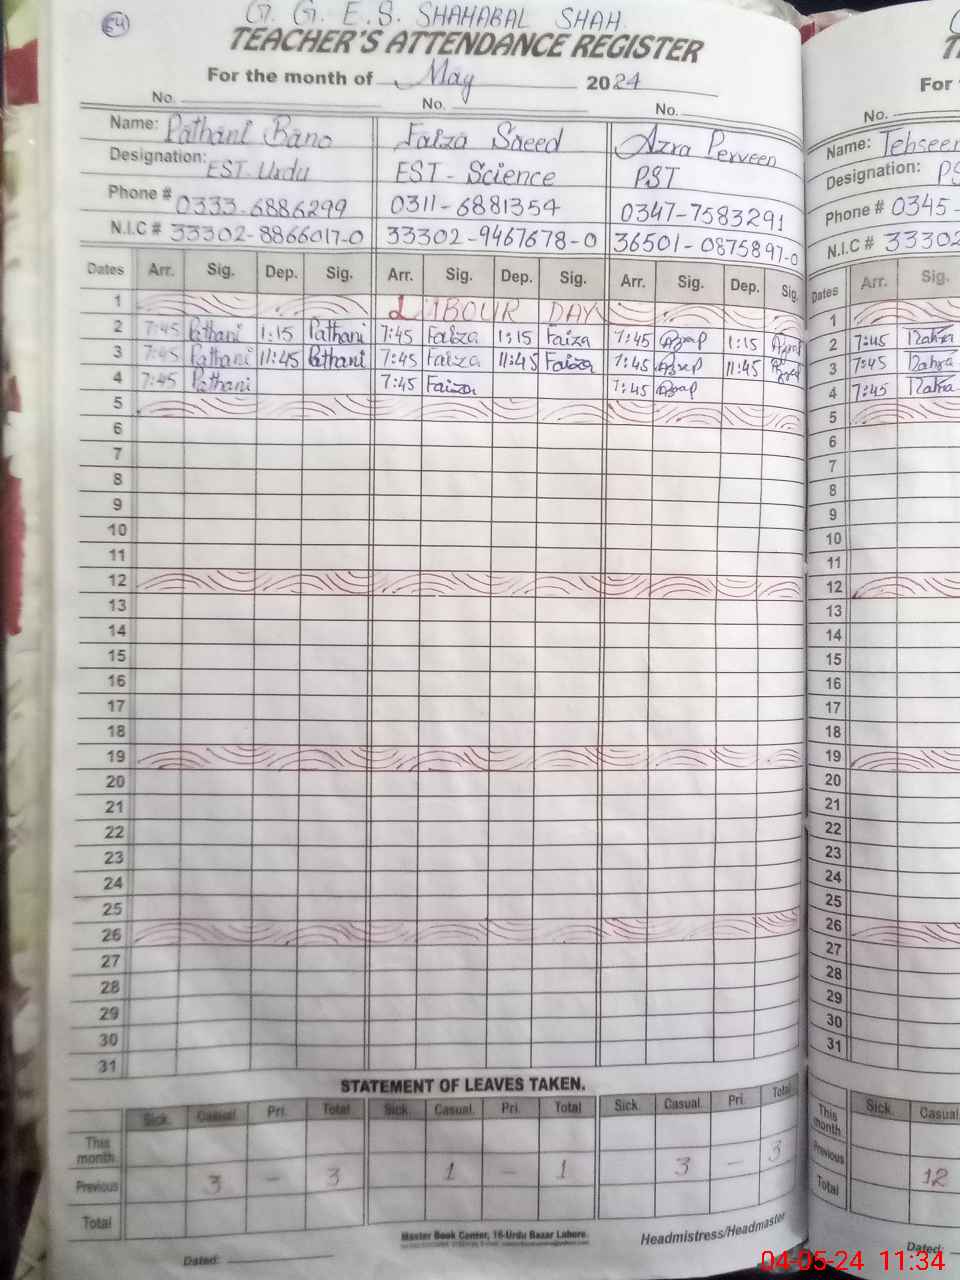 54 G. G. E. S. SHAHABAL SHAH.
TEACHER'S ATTENDANCE REGISTER
For the month of May 2024
No. No. No. No.
Name: Pathani Bano Faiza Saeed Azra Perveen Name: Tehseen
Designation: EST Urdu EST - Science PST Designation: PS
Phone # 0333-6886299 0311-6881354 0347-7583291 Phone # 0345-
N.I.C # 33302-8866017-0 33302-9467678-0 36501-0875897-0 N.I.C # 33302
Dates Arr. Sig. Dep. Sig. Arr. Sig. Dep. Sig. Arr. Sig. Dep. Sig. Dates Arr. Sig.
1 LABOUR DAY 1
2 7:45 Pathani 1:15 Pathani 7:45 Faiza 1:15 Faiza 7:45 1:15 2 7:45
3 7:45 Pathani 11:45 Pathani 7:45 Faiza 11:45 Faiza 7:45 11:45 3 7:45
4 7:45 Pathani 7:45 Faiza 7:45 4 7:45
5 5
6 6
7 7
8 8
9 9
10 10
11 11
12 12
13 13
14 14
15 15
16 16
17 17
18 18
19 19
20 20
21 21
22 22
23 23
24 24
25 25
26 26
27 27
28 28
29 29
30 30
31 31
STATEMENT OF LEAVES TAKEN.
Sick. Casual. Pri. Total Sick. Casual. Pri. Total Sick. Casual. Pri. Total Sick. Casual
This month This month
Previous 3 - 3 1 - 1 3 - 3 Previous 12
Total Total
Master Book Center, 16-Urdu Bazar Lahore.
Headmistress/Headmaster
Dated: Dated:
04-05-24 11:34